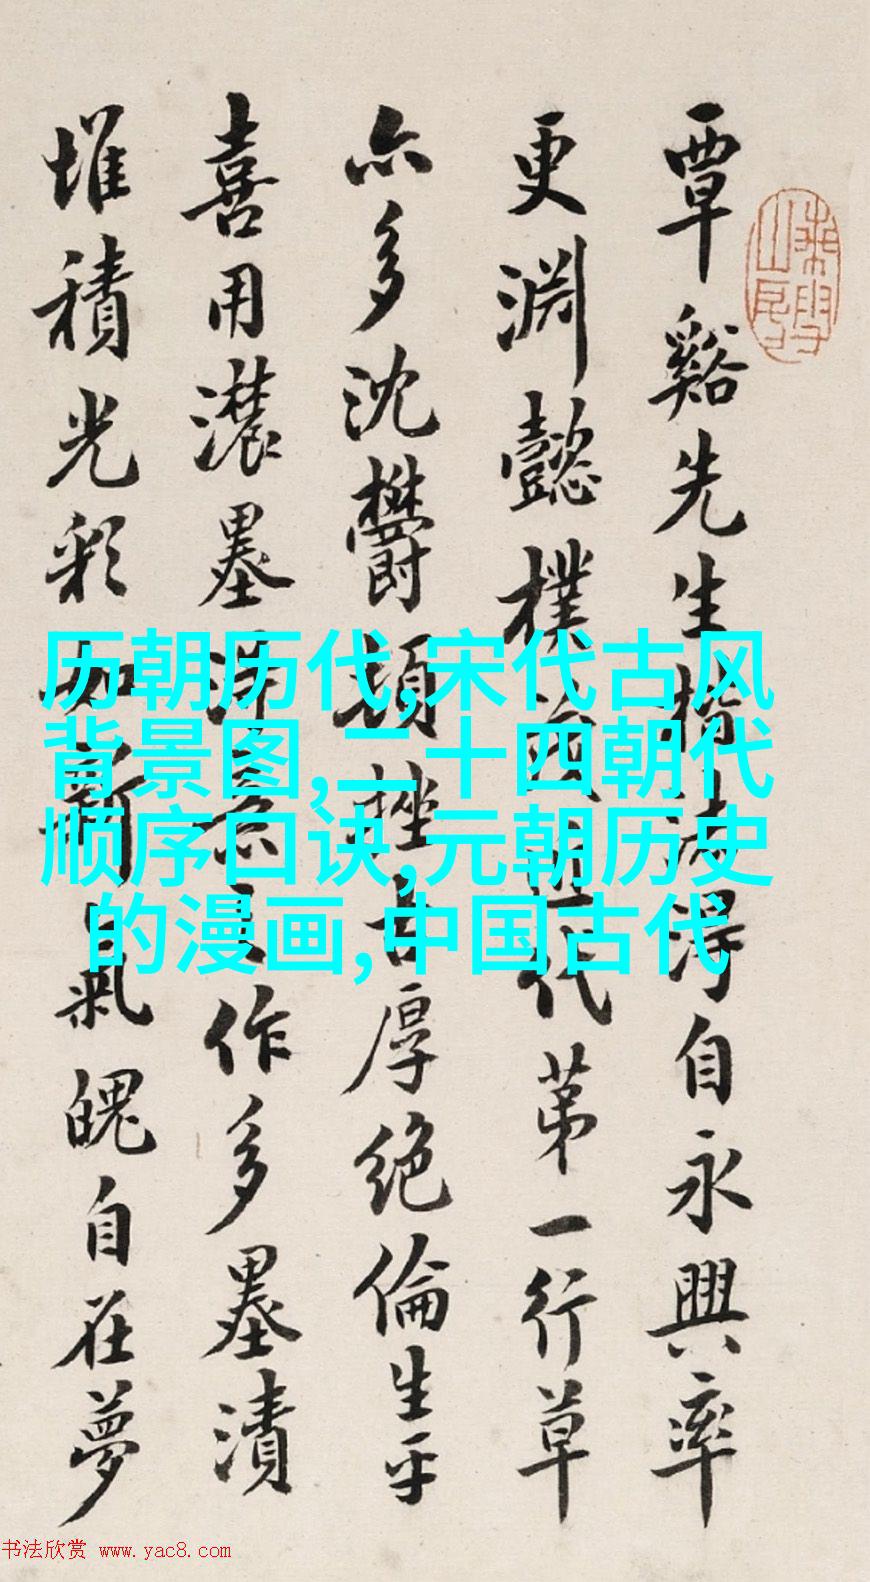 覃谿先生楷法得自永興率
更淵懿樸茂與代第一行草
亦多沈欝頓挫古厚絶倫生平
喜用濃墨作多墨漬
堆積光彩如新氣魄自在夢
历朝历代,宋代古风
背景图,二十四朝代
顺序口诀,元朝历史
的漫画,中国古代
书法欣赏 www.yac8.com